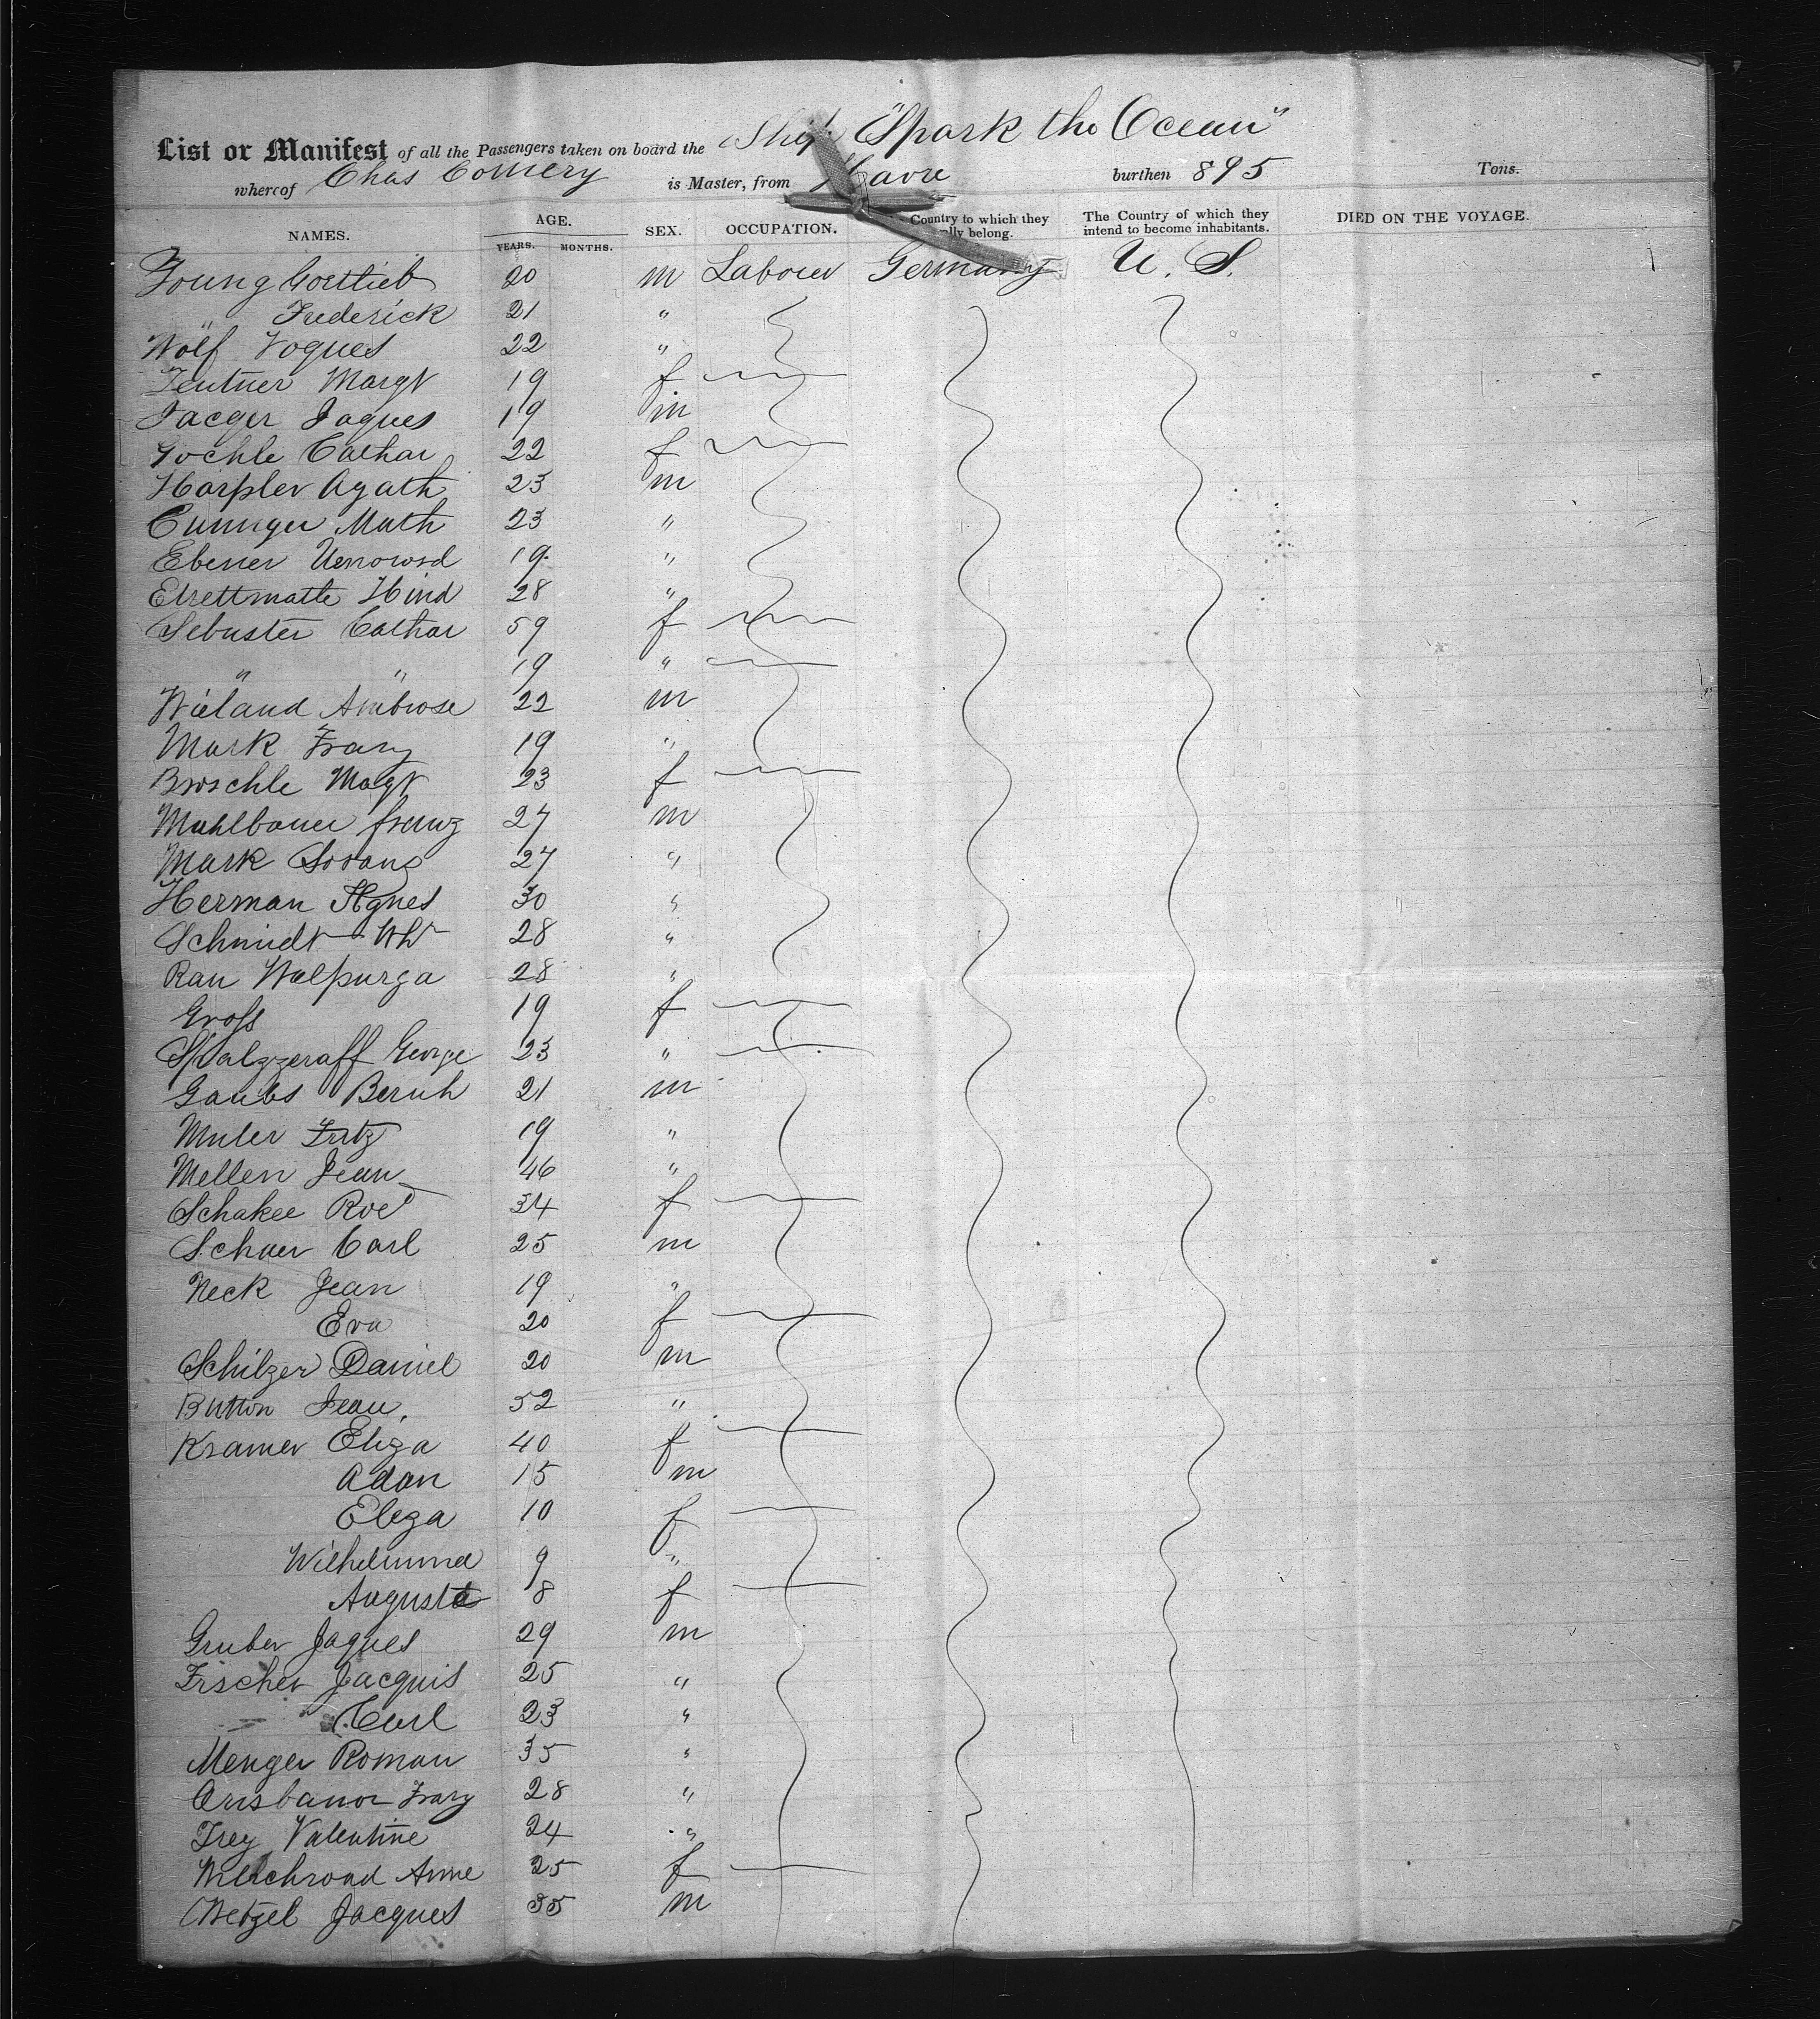 List or Manifest of all the Passengers taken on board the Ship "Spark the Ocean"
whereof Chas Comery is Master, from Havre burthen 895 Tons.
NAMES. AGE. YEARS. MONTHS. SEX. OCCUPATION. Country to which they belong. The Country of which they intend to become inhabitants. DIED ON THE VOYAGE.
Young Gottlieb 20 m Labour Germany U. S.
" Frederick 21 "
Wolf Voques 22 "
Zentner Margt 19 f
Jaeger Jaques 19 m
Gochle Cathar 22 f
Harpler Agath 23 m
Cuninger Math 23 "
Ebener 19 "
Etrettmatte Hind 28 "
Sebuster Cathar 59 f
" " 19 "
Wieland Ambrose 22 m
Mark Franz 19 "
Broschle Magt 23 f
Muhlbauer franz 27 m
Mark 27 "
Herman Agnes 30 "
Schmidt Wh 28 "
Rau Walpurga 28 "
Gross 19 f
Spalzzeraff George 23 "
Gaubs Bernh 21 m
Muler Fritz 19 "
Mellen Jean 46 "
Schakee Roe 34 f
Schuer Carl 25 m
Neck Jean 19 "
Eva 20 f
Schilzer Daniel 20 m
Button Jean. 52 "
Kramer Eliza 40 f
Adan 15 m
Eleza 10 f
Wilhelmina 9 "
Augusta 8 f
Gruber Jaques 29 m
Fischer Jacquis 25 "
Carl 23 "
Menger Roman 35 "
Arisbanor Franz 28 "
Frey Valentine 24 "
Welchroad Anne 25 f
Wetzel Jacques 35 m